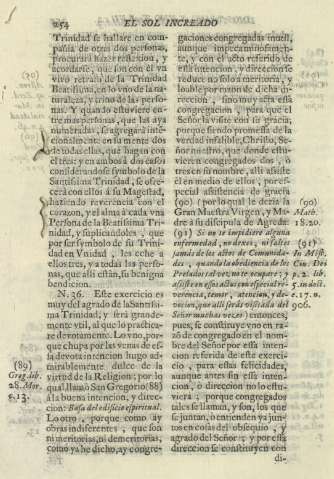 254
EL SOL INCREADO
Trinidad se hallare en com-
pañia de otras dos personas,
procurarà hazer reflexion, y
acordarse, que son con el va
vivo retrato de la Trinidad
Beatissima, en lo vno de la na-
turaleza, y trino de las perso-
nas. Y quando estuviere en-
tre mas personas, que las aya
numeradas, se agregarà inte-
cionalmẽte en su mente dos
de aquellas, que hagan con
el tres: y en ambos à dos casos
considerandose symbolo de la
Santissima Trinidad, se ofre-
cerà con ellos à su Magestad,
haziendo reverencia con el
corazon, y el alma à cada vna
Persona de la Beatissima Tri-
nidad, y suplicandole, que
por ser symbolo de su Trini-
dad en Vnidad, les eche a
ellos tres, y a todas las perso-
nas, que alli estàn, su benigna
bendicion.
N. 36. Este exercicio es
muy del agrado de la Santissi-
ma Trinidad; y serà grande-
mente vtil, al que lo practica-
re devotamente. Lo vno, por-
que chupa por las venas de es-
sa devota intencion hugo ad-
mirablemente dulce de la
virtud de la Religion; por lo
qual llamò San Gregorio (88)
à la buena intencion, y direc-
cion: Basa del edificio espiritual.
Lo otro, porque como ay
obras indiferentes, que son
ni meritorias, ni demeritorias,
como ya he dicho, ay congre-
(89)
Greg. lib.
28. Mor.
c. 13.
gaciones congregadas inutil,
aunque impecaminosamen-
te, y con el acto referido de
essa intencion, y direccion se
reduce no solo a meritoria, y
loable por razon de dicha di-
reccion, sino muy a essa
congregacion, para que el
Señor la visite con su gracia,
porque siendo promessa de la
verdad infalible, Christo, Se-
ñor nuestro, que donde estu-
vieren congregados dos, ò
tres en su nombre, alli assiste
èl en medio de ellos, por es-
pecial assistencia de gracia
(90) (por lo qual le dezia la
Gran Maestra Virgen, y Ma-
dre à su discipula de Agreda
(91) Si no te impidiere alguna
enfermedad, no dexes, ni faltes
jamàs de los actos de Comunida-
des, quando la obediencia de los
Prelados tal vez, no te ocupare; y
assiste en essos actos con especial re-
verencia, temor, atencion, y de-
vocion, que alli seràs visitada del
Señor muchas vezes) entonces,
pues, se constituye vno en ra-
zòn de congregado en el nom-
bre del Señor por essa inten-
cion referida de este exerci-
cio, para essas felicidades,
aunque antes sin essa inten-
cion, ò direccion no lo estu-
viera; porque congregados
tales se llaman, y son, los que
se juntan, ò entienden ya jun-
tos en cosas del obsequio, y
agrado del Señor; y por essa
direccion se constituyen con
di-
(90)
Math.
18. 20.
(91)
In Mist.
Civ. Dei
p. 2. lib.
5. in doct.
c. 17. n.
906.